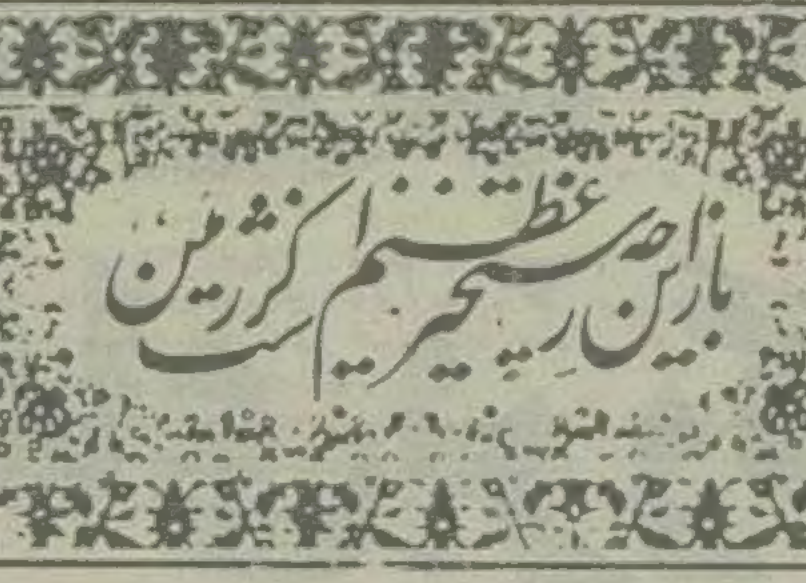 باز این چه رستخیز عظیم است کز زمین